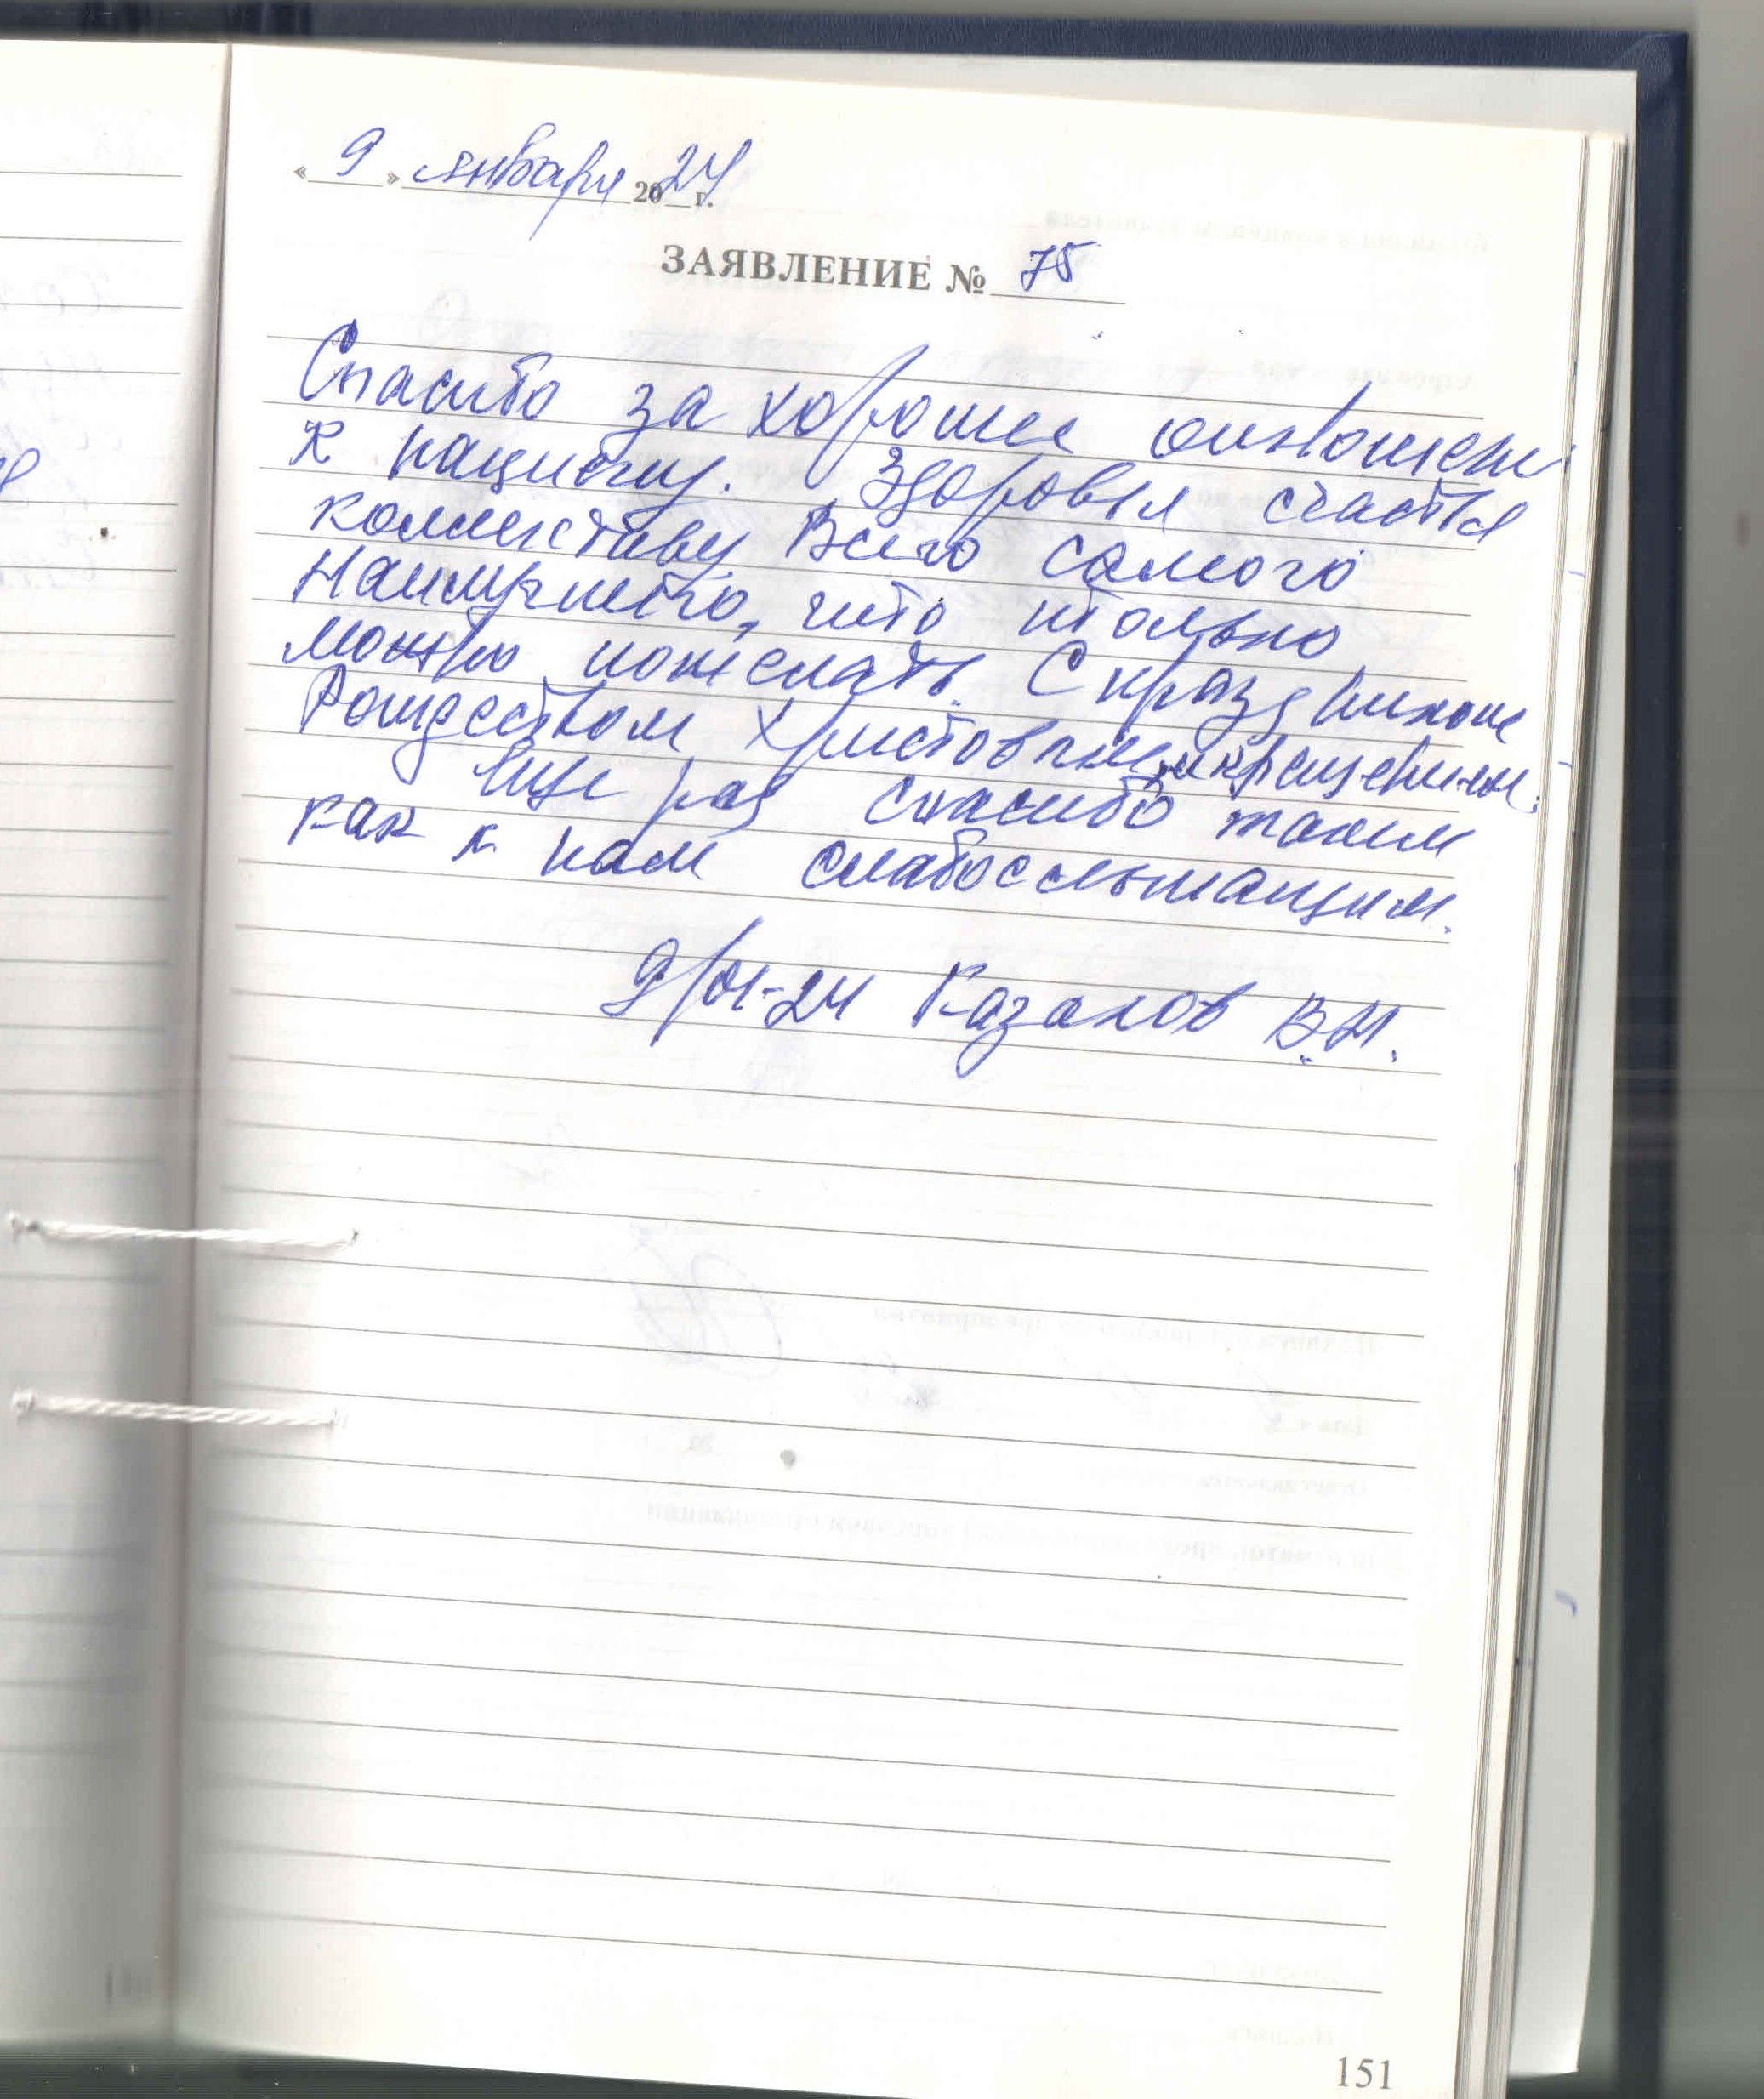 « 9 » января 2024 г.
ЗАЯВЛЕНИЕ № 75
Спасибо за хорошее отношени
к пациенту. Здоровья счастья
коллективу Всего самого
Наилучшего, что только
можно пожелать. С праздником
Рождеством Христовым и крещением.
Еще раз спасибо таким
как к нам слабослышащим.
9/01-24 Казаков В.Н.
151